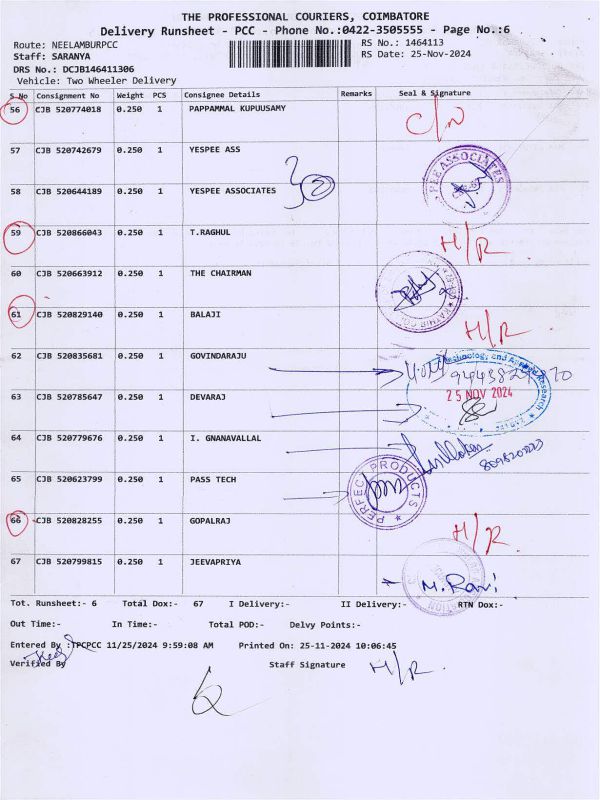 THE PROFESSIONAL COURIERS, COIMBATORE
Delivery Runsheet - PCC - Phone No.:0422-3505555 - Page No.:6
Route: NEELAMBURPCC
RS No.: 1464113
Staff: SARANYA
RS Date: 25-Nov-2024
DRS No.: DCJB146411306
Vehicle: Two Wheeler Delivery
S No Consignment No Weight PCS Consignee Details Remarks Seal & Signature
56 CJB 520774018 0.250 1 PAPPAMMAL KUPUUSAMY
57 CJB 520742679 0.250 1 YESPEE ASS
58 CJB 520644189 0.250 1 YESPEE ASSOCIATES
59 CJB 520866043 0.250 1 T.RAGHUL H/R
60 CJB 520663912 0.250 1 THE CHAIRMAN
61 CJB 520829140 0.250 1 BALAJI H/R
62 CJB 520835681 0.250 1 GOVINDARAJU
63 CJB 520785647 0.250 1 DEVARAJ 25 NOV 2024
64 CJB 520779676 0.250 1 I. GNANAVALLAL
65 CJB 520623799 0.250 1 PASS TECH PERFECT PRODUCTS
66 CJB 520828255 0.250 1 GOPALRAJ H/R
67 CJB 520799815 0.250 1 JEEVAPRIYA M. Ravi
Tot. Runsheet:- 6 Total Dox:- 67 I Delivery:- II Delivery:- RTN Dox:-
Out Time:- In Time:- Total POD:- Delvy Points:-
Entered By :TPCPCC 11/25/2024 9:59:08 AM Printed On: 25-11-2024 10:06:45
Verified By Staff Signature H/R